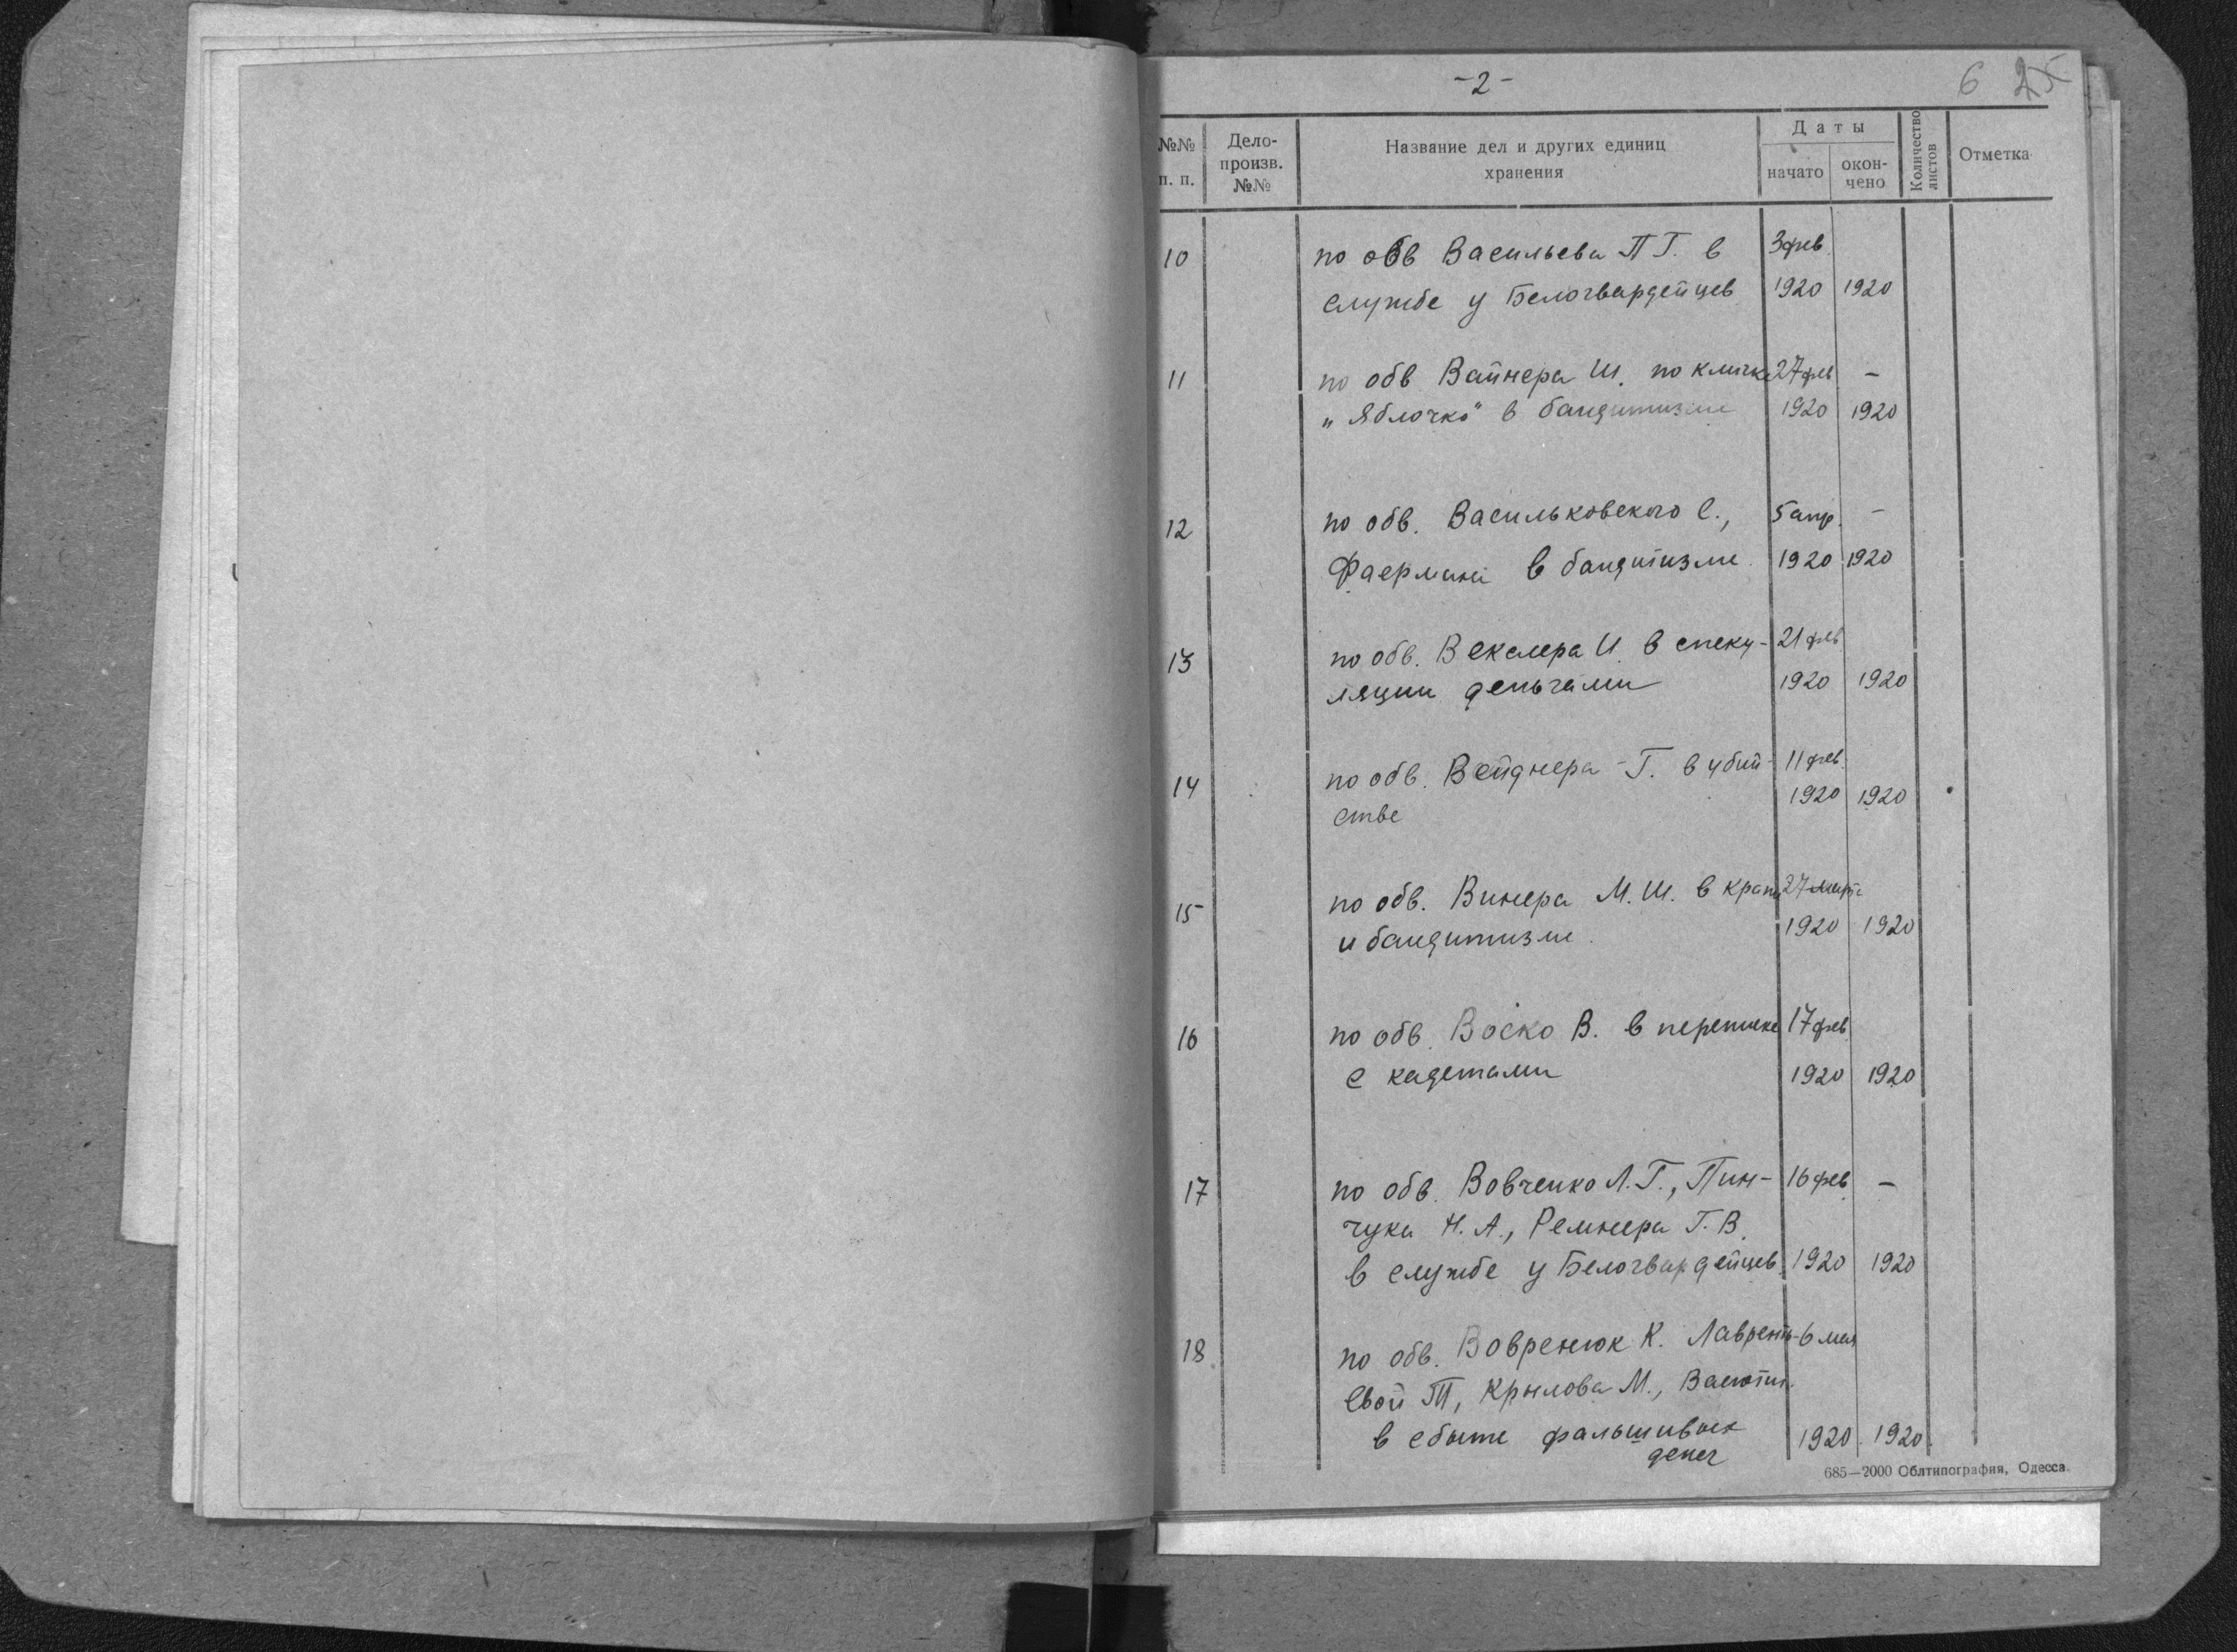 -2-
6 25
№№ п. п. Дело-произв. №№ Название дел и других единиц хранения Даты начато окон-чено Количество листов Отметка
10 по обв Васильева П Г. в 3 фев
службе у Белогвардейцев 1920 1920
11 по обв Вайнера Ш. по кличке 27 фев -
"Яблочко" в бандитизме 1920 1920
12 по обв. Васильковского С., 5 апр. -
Фаермана в бандитизме. 1920 1920
13 по обв. Векслера И. в спеку- 21 фев
ляции деньгами 1920 1920
14 по обв. Вейднера Г. в убий- 11 фев.
стве 1920 1920
15 по обв. Винера М. Ш. в краже 27 марта
и бандитизме. 1920 1920
16 по обв. Воско В. в переписке 17 фев
с кадетами 1920 1920
17 по обв. Вовченко Л. Г., Пин- 16 фев -
чука Н. А., Ремнера Г. В.
в службе у Белогвардейцев. 1920 1920
18 по обв. Вовренюк К. Лаврентъ- 6 мая
евой Т, Крылова М.,
в сбыте фальшивых 1920 1920.
денег
685—2000 Облтипография, Одесса.